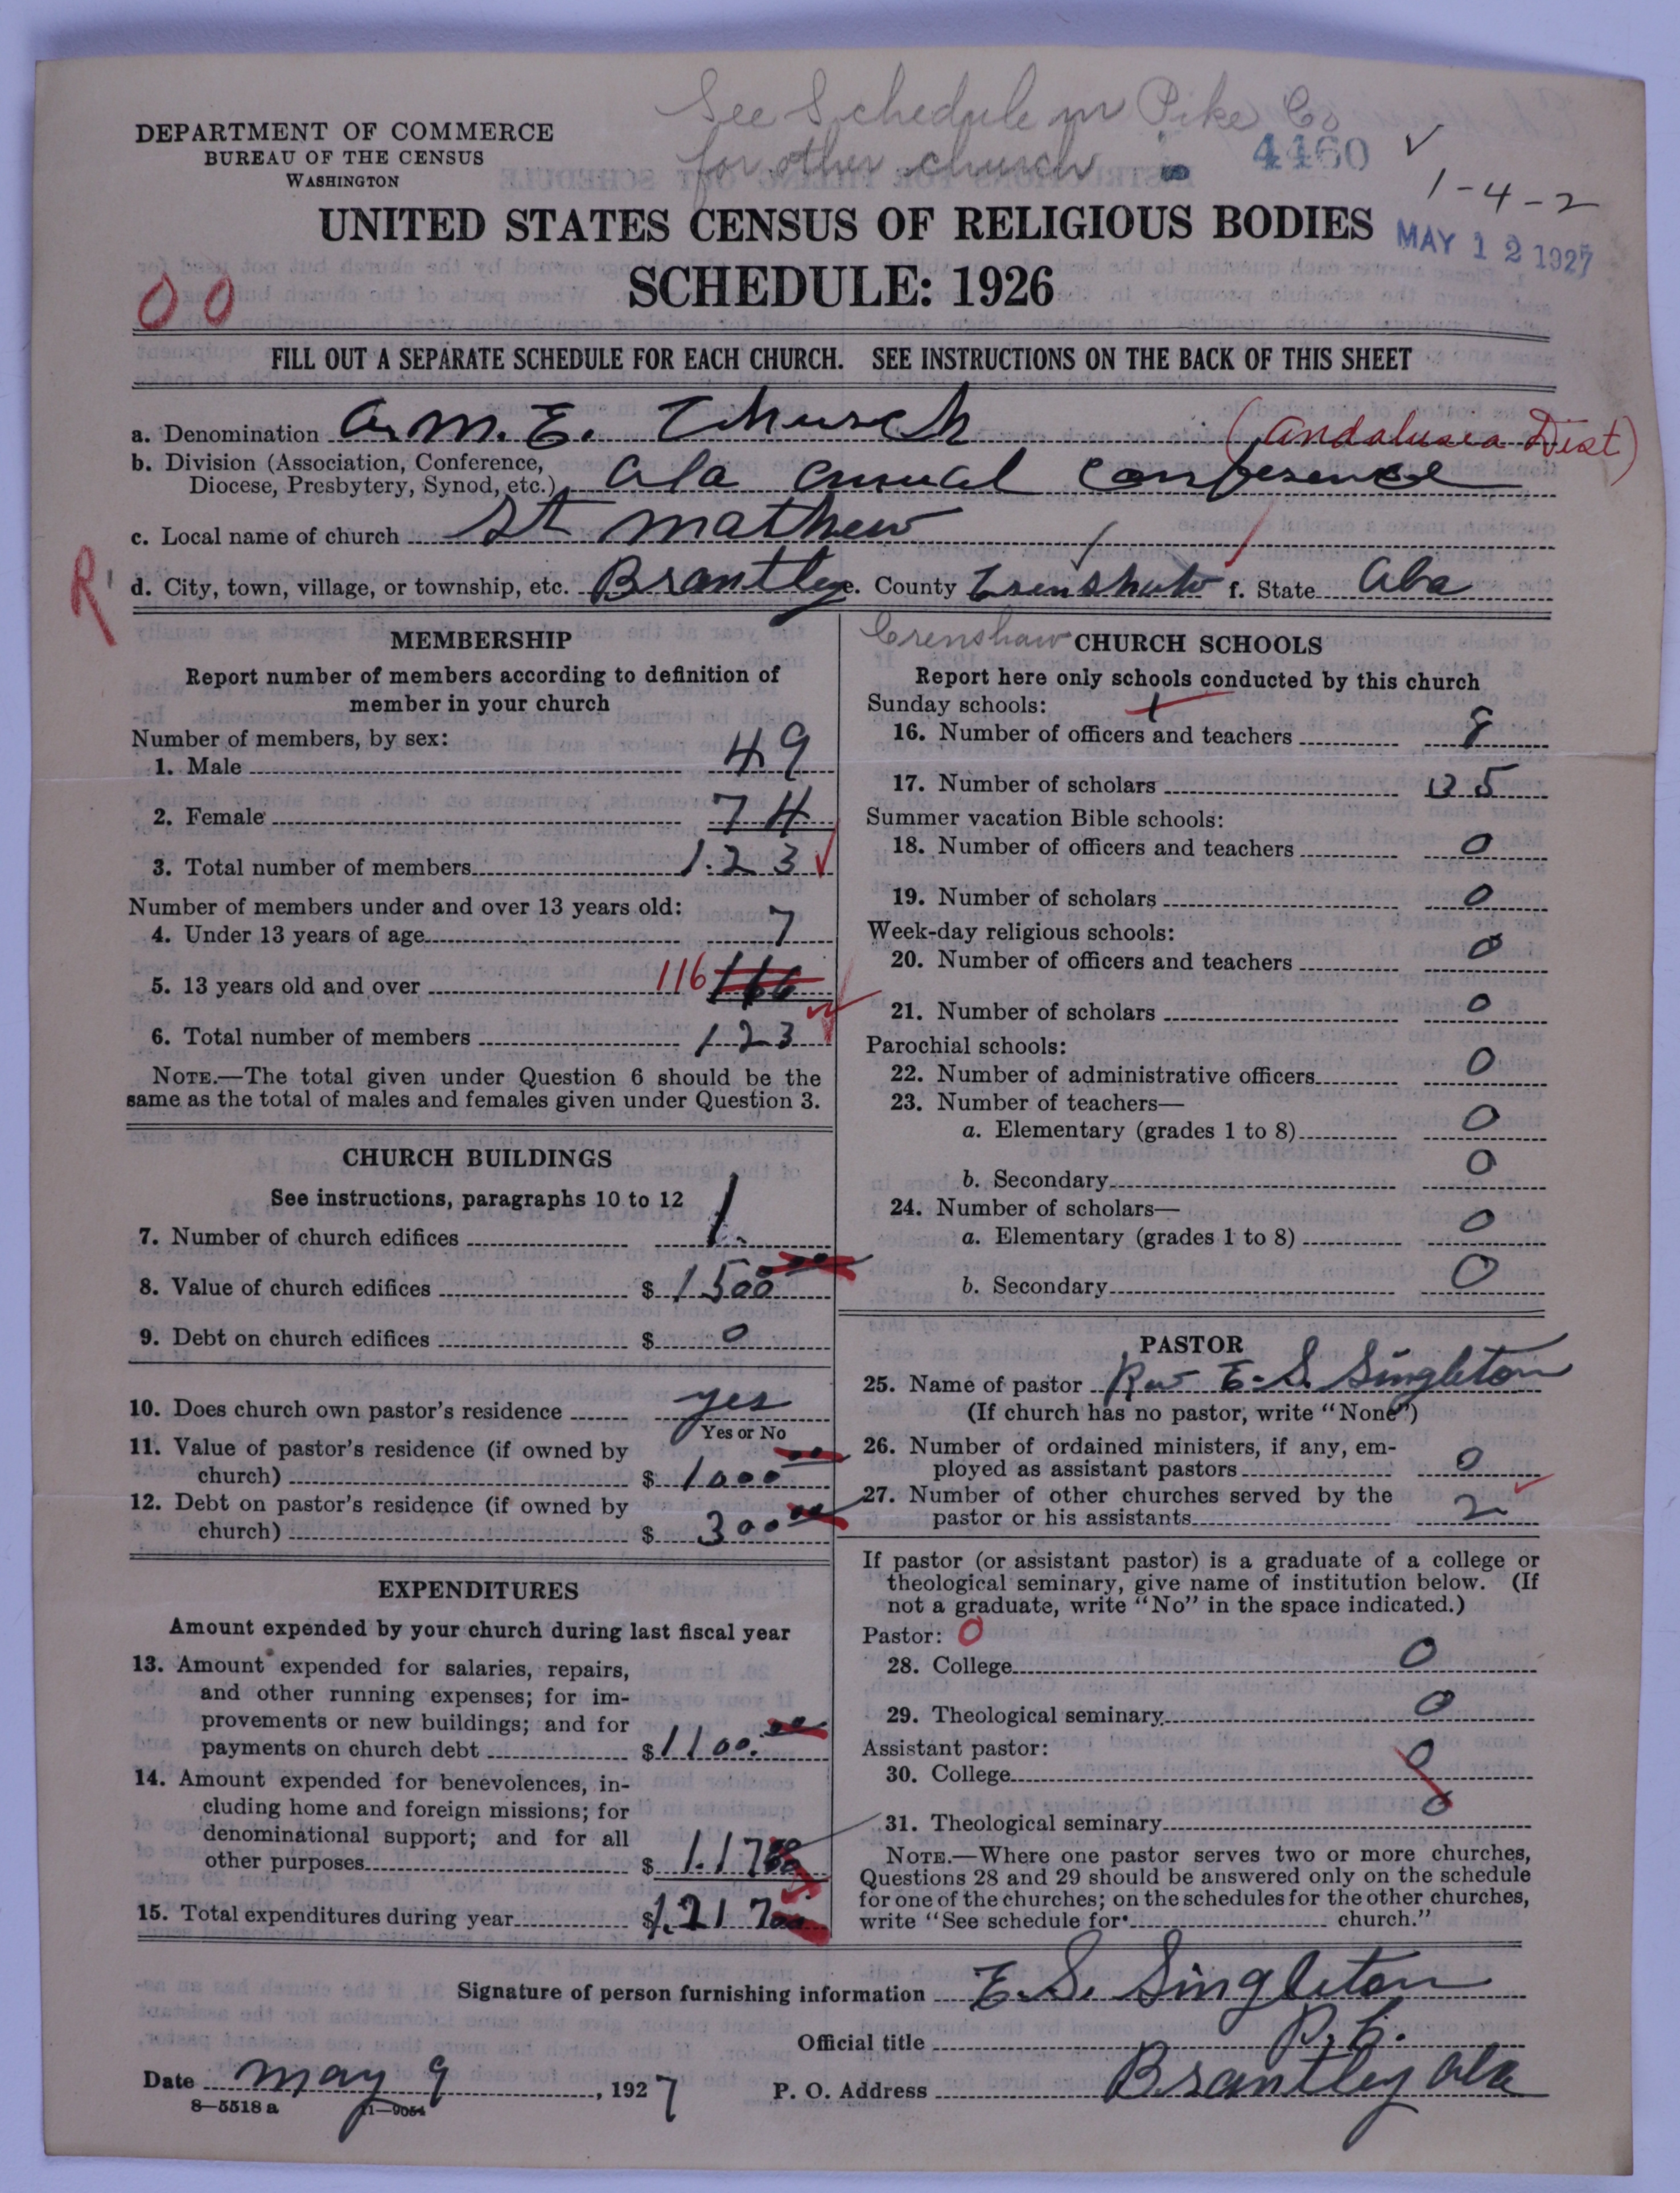 See Schedule in Pike Co
for other church
4460
1-4-2
MAY 12 1927
DEPARTMENT OF COMMERCE
BUREAU OF THE CENSUS
WASHINGTON
UNITED STATES CENSUS OF RELIGIOUS BODIES
SCHEDULE: 1926
00
FILL OUT A SEPARATE SCHEDULE FOR EACH CHURCH. SEE INSTRUCTIONS ON THE BACK OF THIS SHEET
a. Denomination A. M. E. Church (Andalusia Dist)
b. Division (Association, Conference,
Diocese, Presbytery, Synod, etc.) Ala Annual Conference
c. Local name of church St Mathew
R
d. City, town, village, or township, etc. Brantley e. County Crenshaw f. State Ala
Crenshaw
MEMBERSHIP
Report number of members according to definition of
member in your church
Number of members, by sex:
1. Male 49
2. Female 74
3. Total number of members 123
Number of members under and over 13 years old:
4. Under 13 years of age 7
5. 13 years old and over 116 116
6. Total number of members 123
NOTE.—The total given under Question 6 should be the
same as the total of males and females given under Question 3.
CHURCH BUILDINGS
See instructions, paragraphs 10 to 12
7. Number of church edifices 1
8. Value of church edifices $ 1500 00
9. Debt on church edifices $ 0
10. Does church own pastor's residence yes
Yes or No
11. Value of pastor's residence (if owned by
church) $ 1000 00
12. Debt on pastor's residence (if owned by
church) $ 300 00
EXPENDITURES
Amount expended by your church during last fiscal year
13. Amount expended for salaries, repairs,
and other running expenses; for im-
provements or new buildings; and for
payments on church debt $ 1100. 00
14. Amount expended for benevolences, in-
cluding home and foreign missions; for
denominational support; and for all
other purposes $ 117
15. Total expenditures during year $ 1217 00
CHURCH SCHOOLS
Report here only schools conducted by this church
Sunday schools: 1
16. Number of officers and teachers 8
17. Number of scholars 35
Summer vacation Bible schools:
18. Number of officers and teachers 0
19. Number of scholars 0
Week-day religious schools:
20. Number of officers and teachers 0
21. Number of scholars 0
Parochial schools:
22. Number of administrative officers 0
23. Number of teachers—
a. Elementary (grades 1 to 8) 0
b. Secondary 0
24. Number of scholars—
a. Elementary (grades 1 to 8) 0
b. Secondary 0
PASTOR
25. Name of pastor Rev E. S. Singleton
(If church has no pastor, write "None")
26. Number of ordained ministers, if any, em-
ployed as assistant pastors 0
27. Number of other churches served by the
pastor or his assistants 2
If pastor (or assistant pastor) is a graduate of a college or
theological seminary, give name of institution below. (If
not a graduate, write "No" in the space indicated.)
Pastor: 0
28. College 0
29. Theological seminary 0
Assistant pastor:
30. College 0
31. Theological seminary 0
NOTE.—Where one pastor serves two or more churches,
Questions 28 and 29 should be answered only on the schedule
for one of the churches; on the schedules for the other churches,
write "See schedule for church."
Signature of person furnishing information E. S. Singleton
Official title P. C.
Date May 9, 1927 P. O. Address Brantley Ala
8—5518 a 11—9054